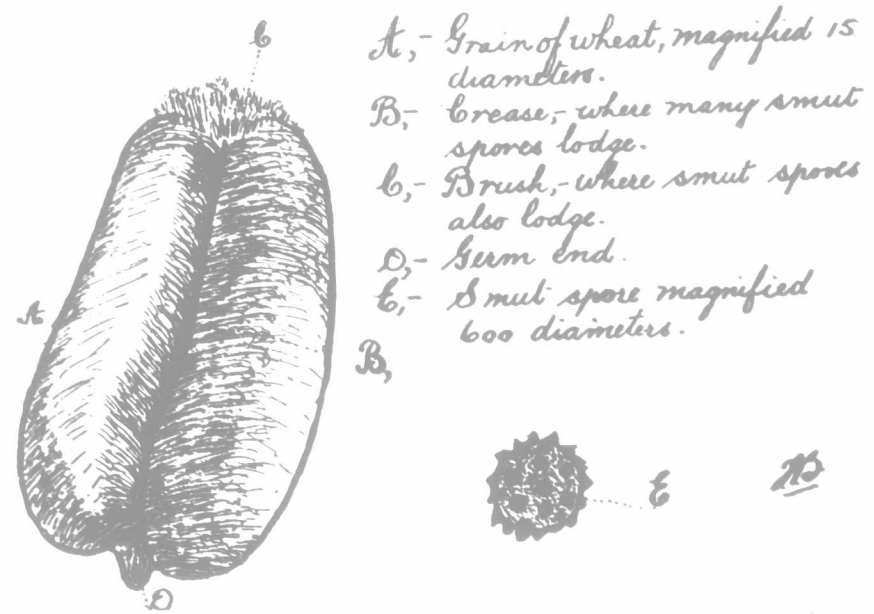 C
A,- Grain of wheat, magnified 15
diameters.
B,- Crease,- where many smut
spores lodge.
C,- Brush,- where smut spores
also lodge.
D,- Germ end.
E,- Smut spore magnified
600 diameters.
A
B,
E
D